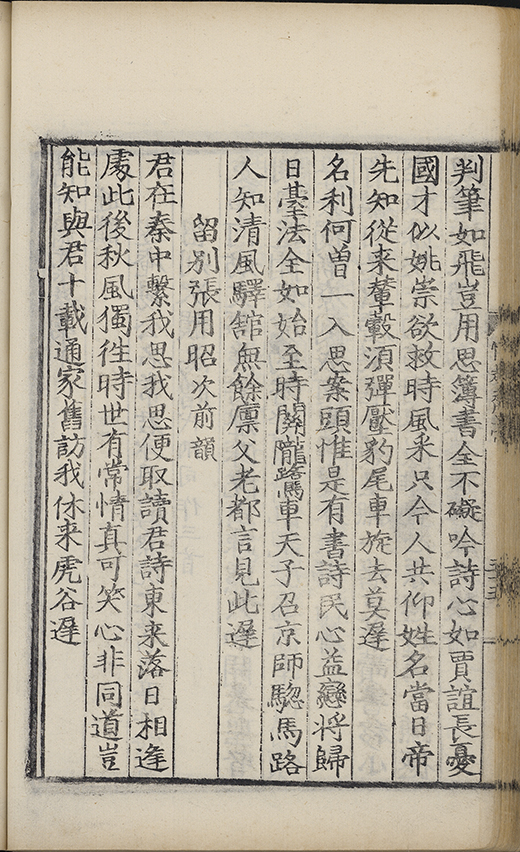 判筆如飛豈用思簿書全不礙吟詩心如賈誼長憂
國才似姚崇欲救時風采只今人共仰姓名當日帝
先知從来輦轂須彈壓豹尾車旋去莫遲
名利何曽一入思案頭惟是有書詩民心益戀将歸
日臺法全如始至時關隴鷺車天子召京師驄馬路
人知清風驛舘無餘廪父老都言見此遲
留别張用昭次前韻
君在秦中繫我思我思便取讀君詩東来落日相逢
處此後秋風獨徃時世有常情真可笑心非同道豈
能知與君十載通家舊訪我休来虎谷遲